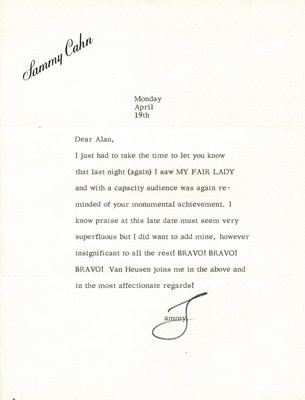 Sammy Cahn
Monday
April
19th
Dear Alan,
I just had to take the time to let you know
that last night (again) I saw MY FAIR LADY
and with a capacity audience was again re-
minded of your monumental achievement. I
know praise at this late date must seem very
superfluous but I did want to add mine, however
insignificant to all the rest! BRAVO! BRAVO!
BRAVO! Van Heusen joins me in the above and
in the most affectionate regards!
Sammy